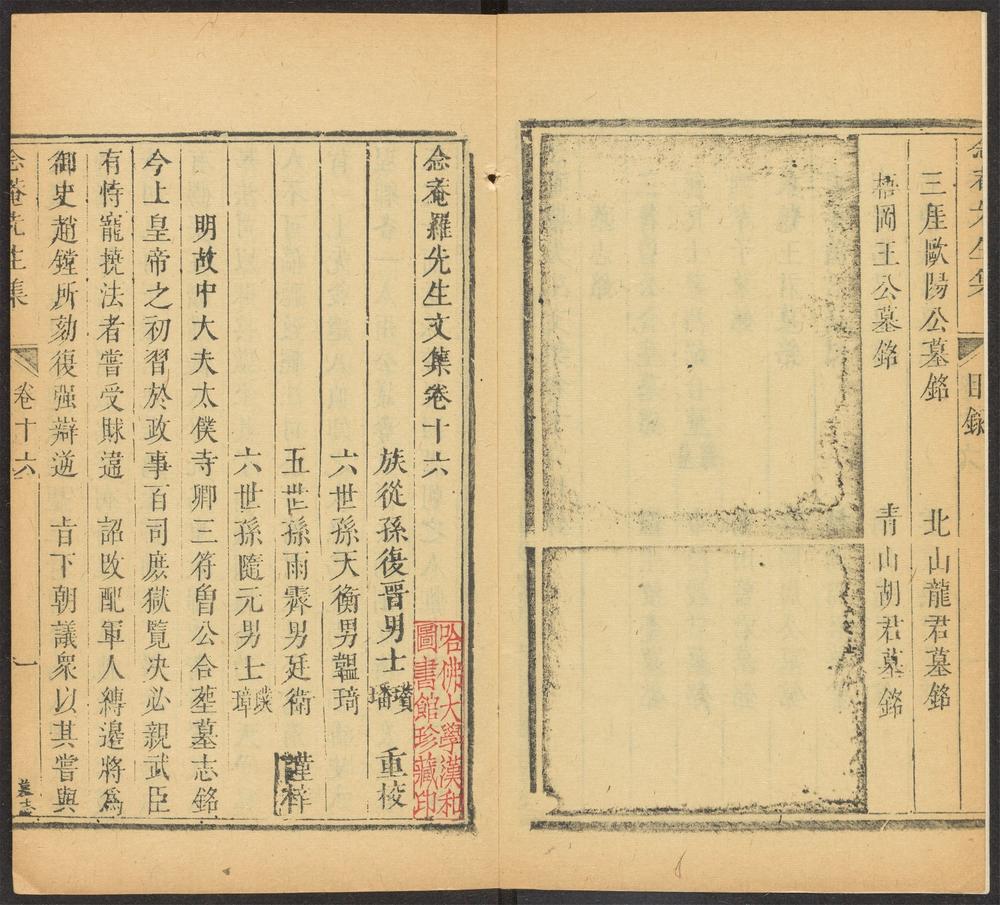 念菴先生集 目錄
三厓歐陽公墓銘 北山龍君墓銘
梧岡王公墓銘 青山胡君墓銘
念菴羅先生文集卷十六
族從孫復晋男士 重校
六世孫天衡男韞琦
五世孫雨霽男廷衛 謹梓
六世孫隨元男士璞璋
明故中大夫太僕寺卿三符曾公合塟墓志銘
今上皇帝之初習於政事百司庶獄覽决必親武臣
有恃寵撓法者嘗受賕違 詔改配軍人縳邊將為
御史趙鏜所劾復强辯逆 旨下朝議衆以其嘗與
念菴先生集 卷十六 一 墓志
哈佛大學漢和
圖書館珍藏印